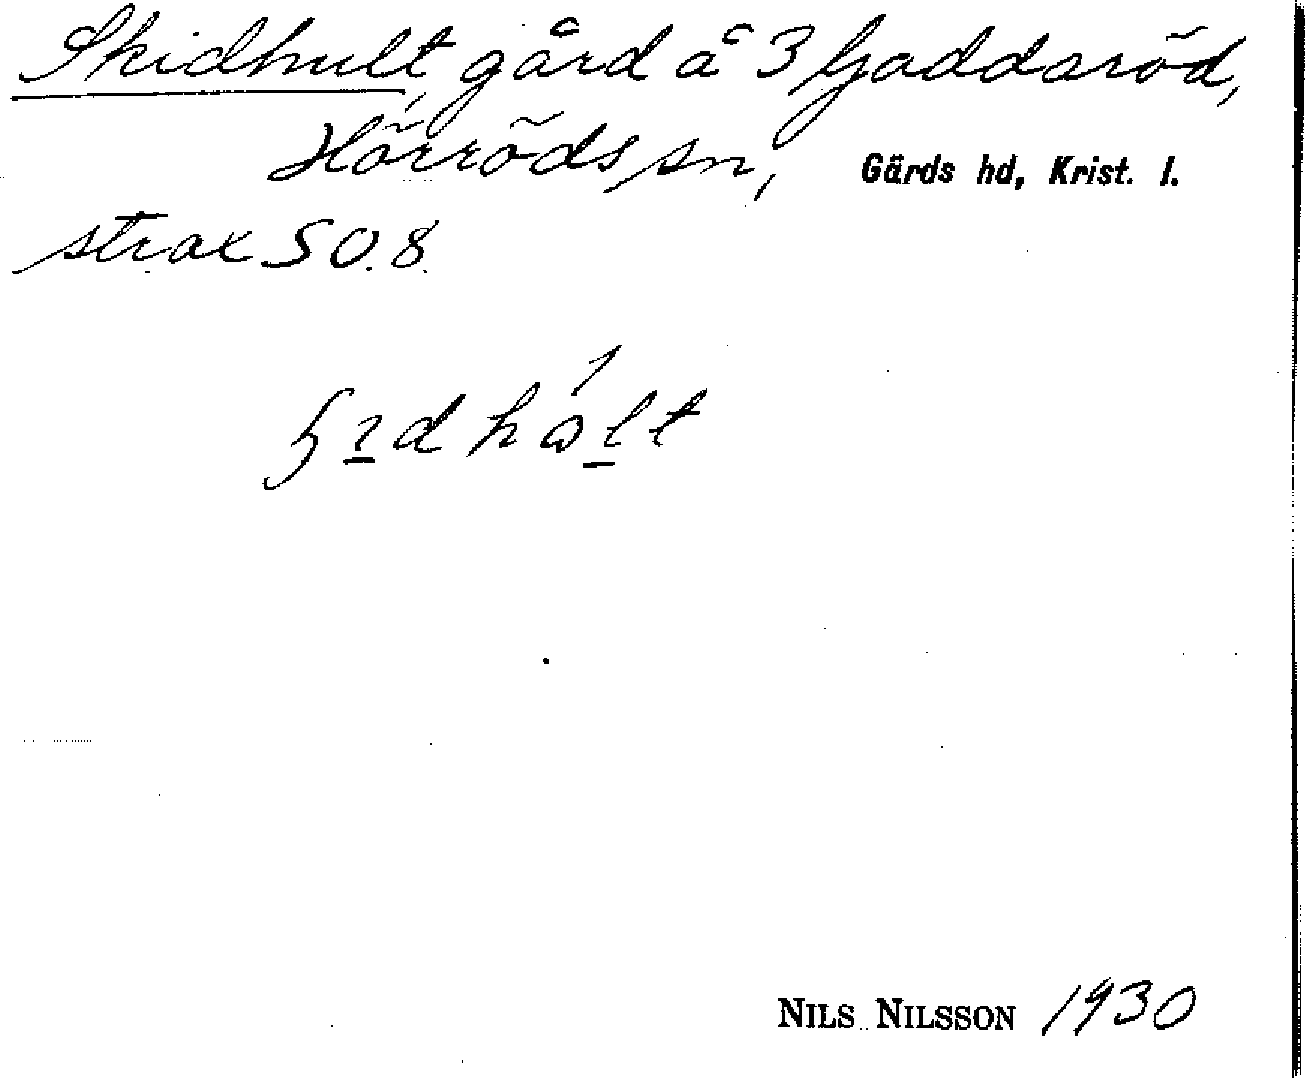 Skidhult, gård å 3 Gaddaröd,
Hörröds sn, Gärds hd, Krist. l.
strax SO. 8.
Nils Nilsson 1930